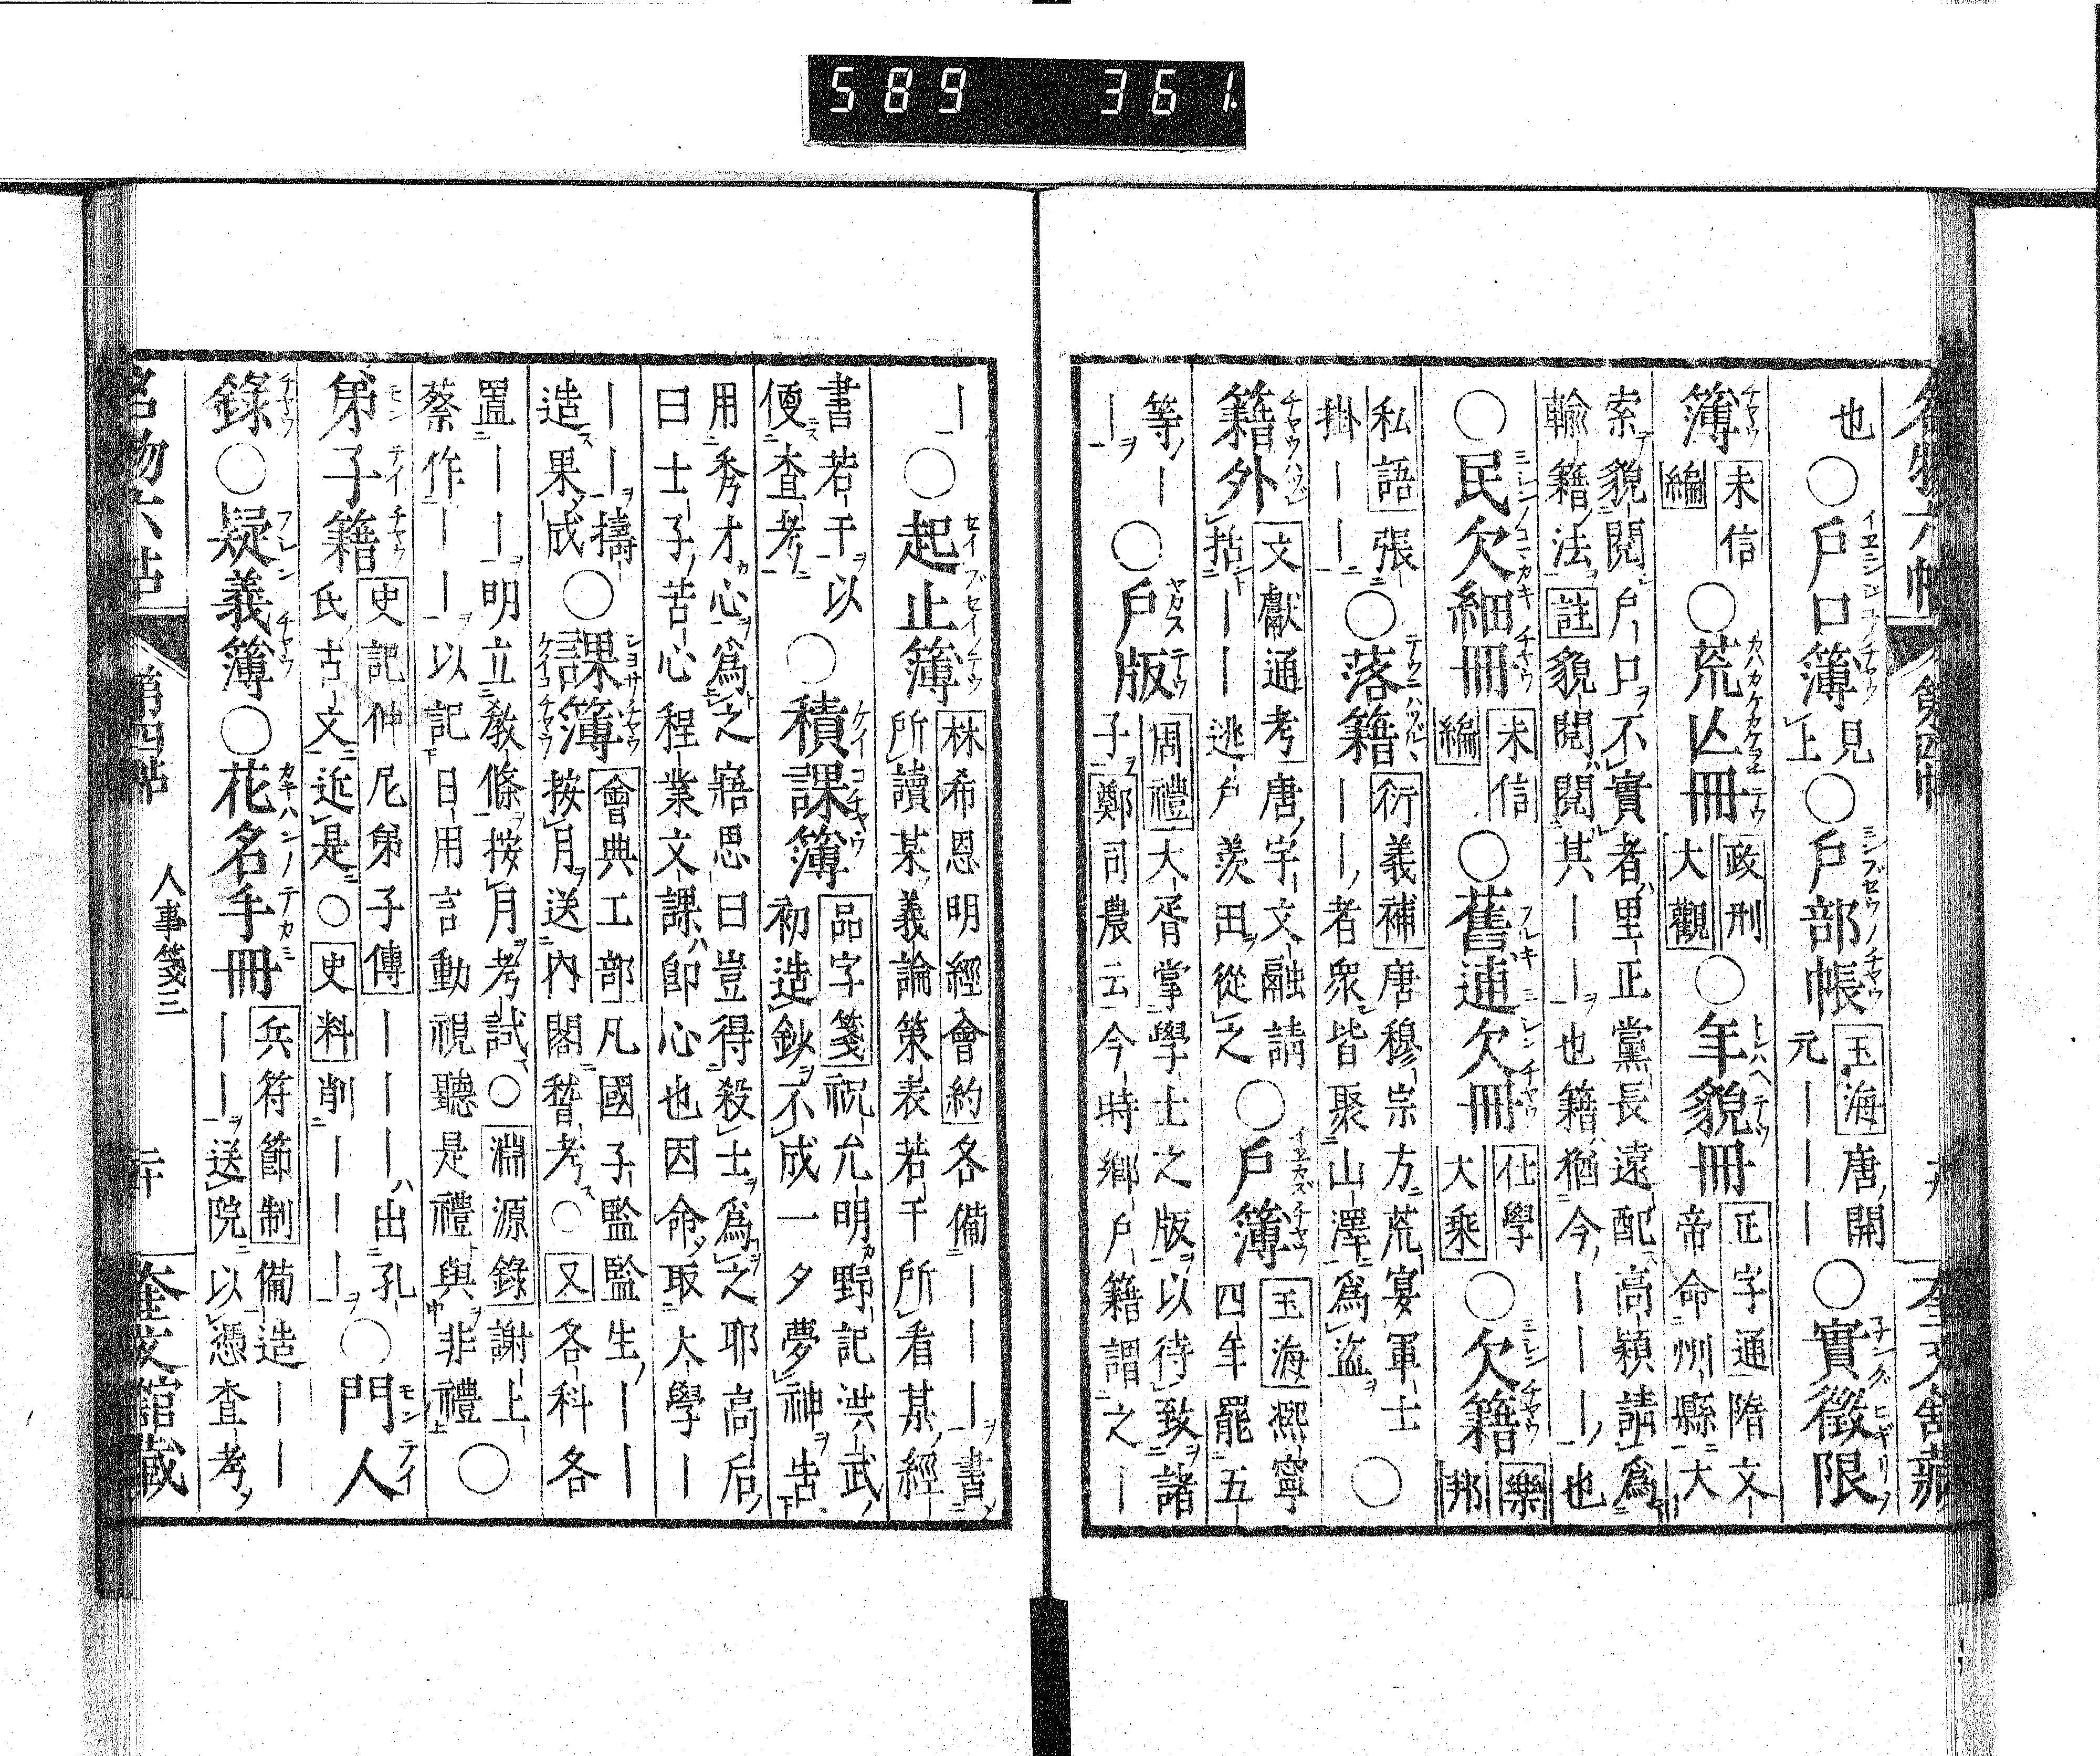 589 361.
名物六帖 第四帖 奎文館藏
也○戶口簿見上○戶部帳玉海唐開元｜｜｜○實徵限
簿未信編○荒亾冊政刑大觀○年貌冊正字通隋文帝命州縣大
索貌閱戶口不實者里正黨長遠配高潁請爲輸籍法註貌閱閱其｜｜也籍猶今｜｜｜也
○民欠細冊未信編○舊逋欠冊仕學大乘○欠籍樂邦
私語張掛｜｜｜○落籍衍義補唐穆宗方荒宴軍士｜｜者衆皆聚山澤爲盜○
籍外文獻通考唐宇文融請括｜｜逃戶羨田從之○戶簿玉海熙寧四年罷五
等｜｜○戶版周禮大胥掌學士之版以待致諸子鄭司農云今時鄉戶籍謂之｜
｜○起止簿林希恩明經會約各備｜｜｜書所讀某義論策表若干所看某經
書若干以便查考○積課簿品字箋祝允明野記洪武初造鈔不成一夕夢神告
用秀才心爲之寤思曰豈得殺士爲之耶高后曰士子苦心程業文課卽心也因命取大學｜
｜｜擣造果成○課簿會典工部凡國子監監生｜｜按月送內閣稽考○又各科各
置｜｜明立教條按月考試○淵源錄謝上蔡作｜｜以記日用言動視聽是禮與非禮○
弟子籍史記仲尼弟子傳｜｜｜出孔氏古文近是○史料削｜｜｜○門人
錄○疑義簿○花名手冊兵符節制備造｜｜｜｜送院以憑查考
名物六帖 第四帖 人事箋三 二十 奎文館藏